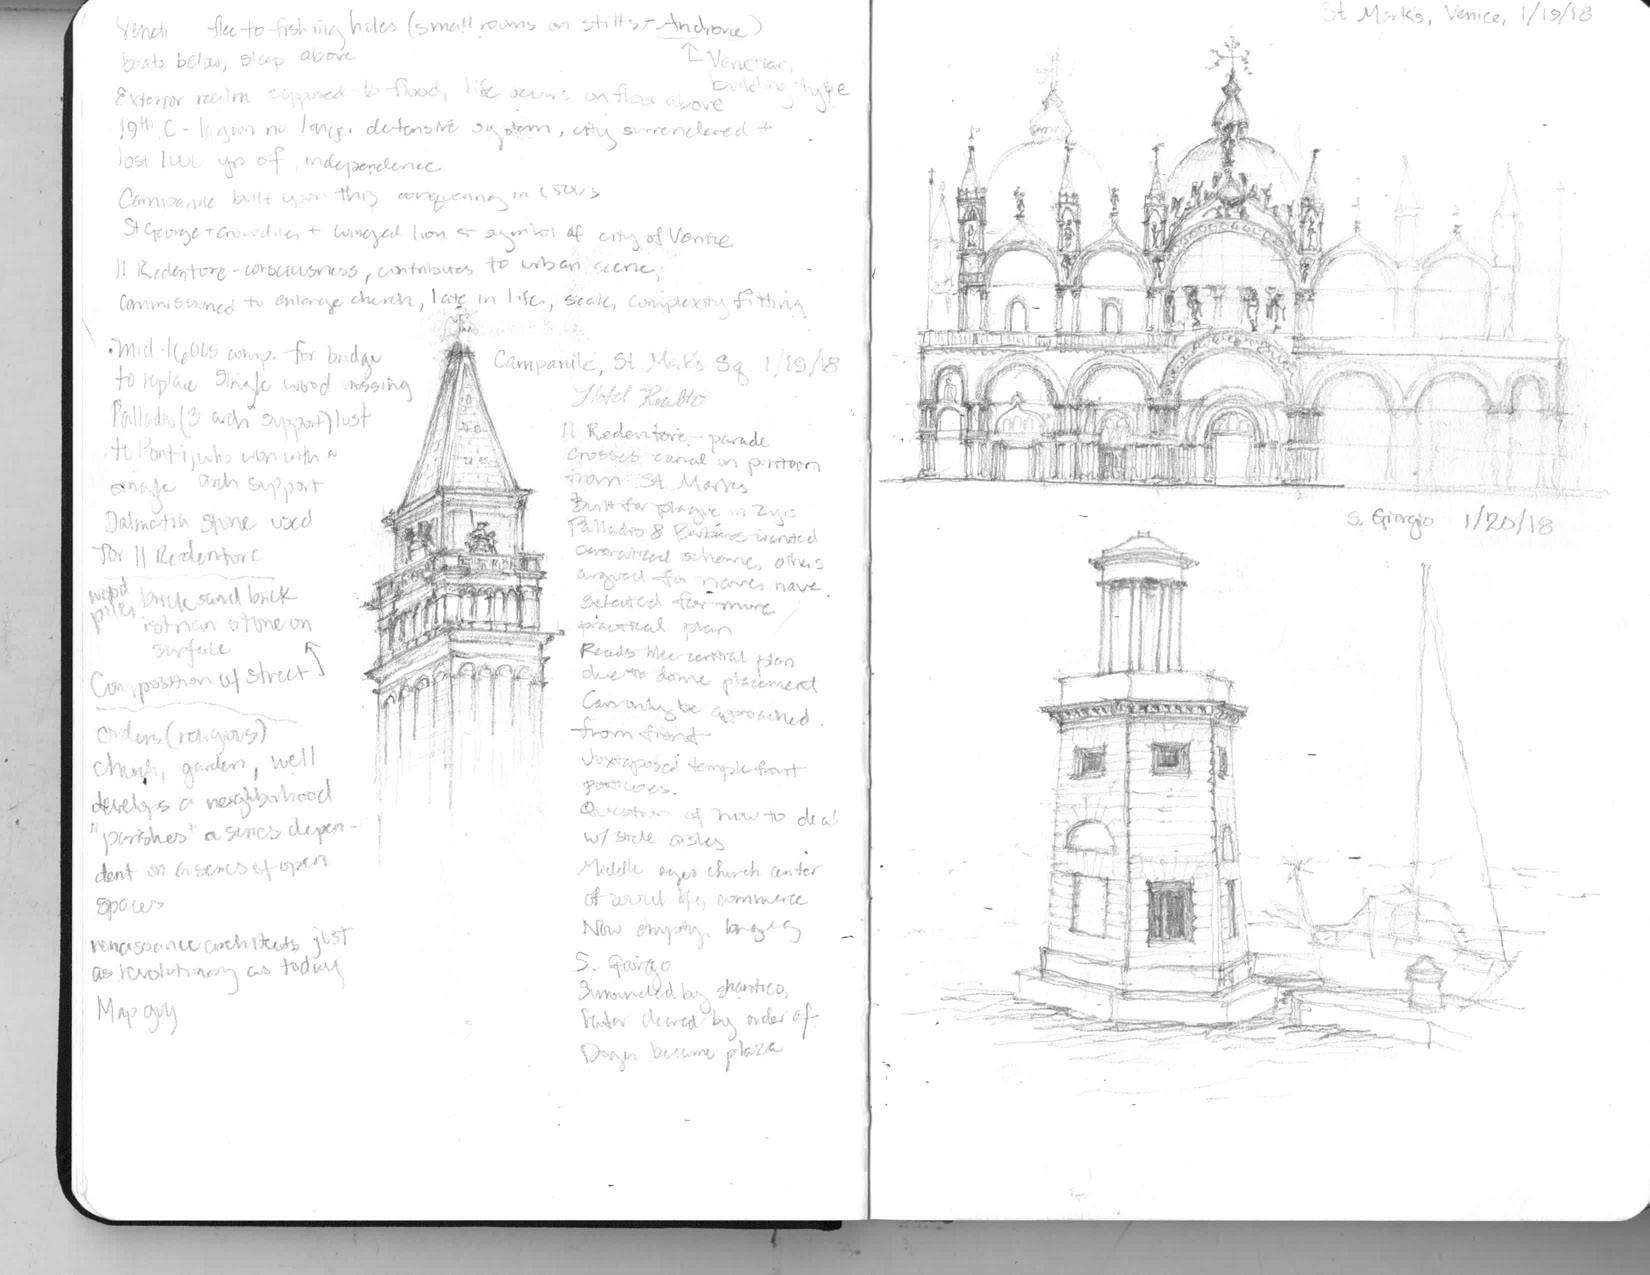 flee to fishing holes (small rooms on stilts - Androne)
boats below, sleep above
↑ Venetian
building type
Exterior realm supposed to flood, life occurs on floor above
19th C - lagoon no longer defensive system, city surrendered +
lost 1000 yrs of independence
Campanile built upon this conquering in 1500s
St George + crocodiles + winged lion symbol of city of Venice
Il Redentore - consciousness, contributes to urban scene,
commissioned to enlarge church, late in life, scale, complexity fitting
• Mid-1600s comp. for bridge
to replace single wood crossing
Palladio (3 arch support) lost
to Ponti, who won with a
single arch support
Dalmatia stone used
for Il Redentore
wood
piles
brick sand brick
istrian stone on
surface
Composition of street
orders (religious)
church, garden, well
develops a neighborhood
"parishes" a series depen-
dent on a series of open
spaces
renaissance architects just
as revolutionary as today
Map guy
Campanile, St. Mark's Sq. 1/19/18
Hotel Rialto
Il Redentore - parade
crosses canal on pontoon
from St. Marks
Built for plague in 2 yrs
Palladio & Barbaro wanted
centralized scheme, others
argued for naves nave
selected for more
practical plan
Reads like central plan
due to dome placement
Can only be approached
from front
Juxtaposed temple front
porticoes.
Question of how to deal
w/ side aisles
Middle ages church center
of social life, commerce
Now empty,
S. Giorgo
Surrounded by
later cleared by order of
Doge, became plaza
St Mark's, Venice, 1/19/18
S. Giorgio 1/20/18